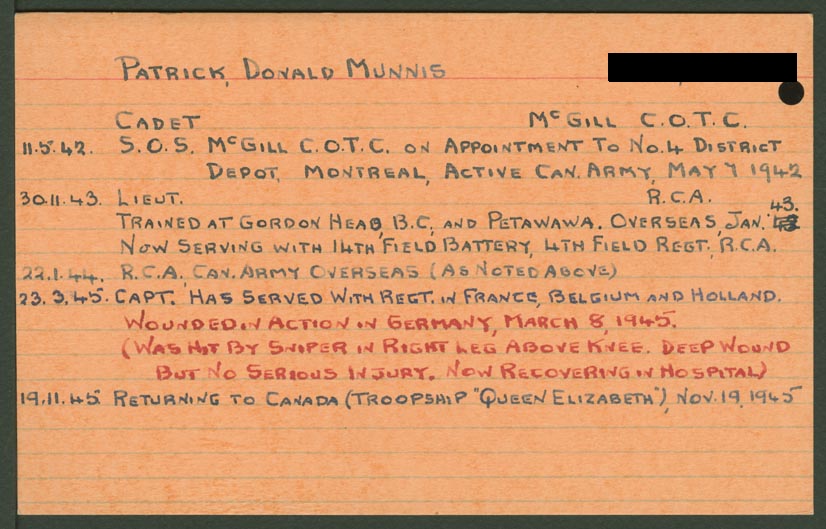 PATRICK, DONALD MUNNIS
CADET MCGILL C.O.T.C.
11.5.42. S.O.S. MCGILL C.O.T.C. ON APPOINTMENT TO NO.4 DISTRICT
DEPOT, MONTREAL, ACTIVE CAN. ARMY, MAY 7 1942
30.11.43. LIEUT. R.C.A.
TRAINED AT GORDON HEAD, B.C, AND PETAWAWA. OVERSEAS, JAN. '43.
NOW SERVING WITH 14TH FIELD BATTERY, 4TH FIELD REGT., R.C.A.
22.1.44. R.C.A. CAN. ARMY OVERSEAS (AS NOTED ABOVE)
23.3.45. CAPT. HAS SERVED WITH REGT. IN FRANCE, BELGIUM AND HOLLAND.
WOUNDED IN ACTION IN GERMANY, MARCH 8, 1945.
(WAS HIT BY SNIPER IN RIGHT LEG ABOVE KNEE. DEEP WOUND
BUT NO SERIOUS INJURY. NOW RECOVERING IN HOSPITAL)
19.11.45 RETURNING TO CANADA (TROOPSHIP "QUEEN ELIZABETH"), NOV. 19, 1945